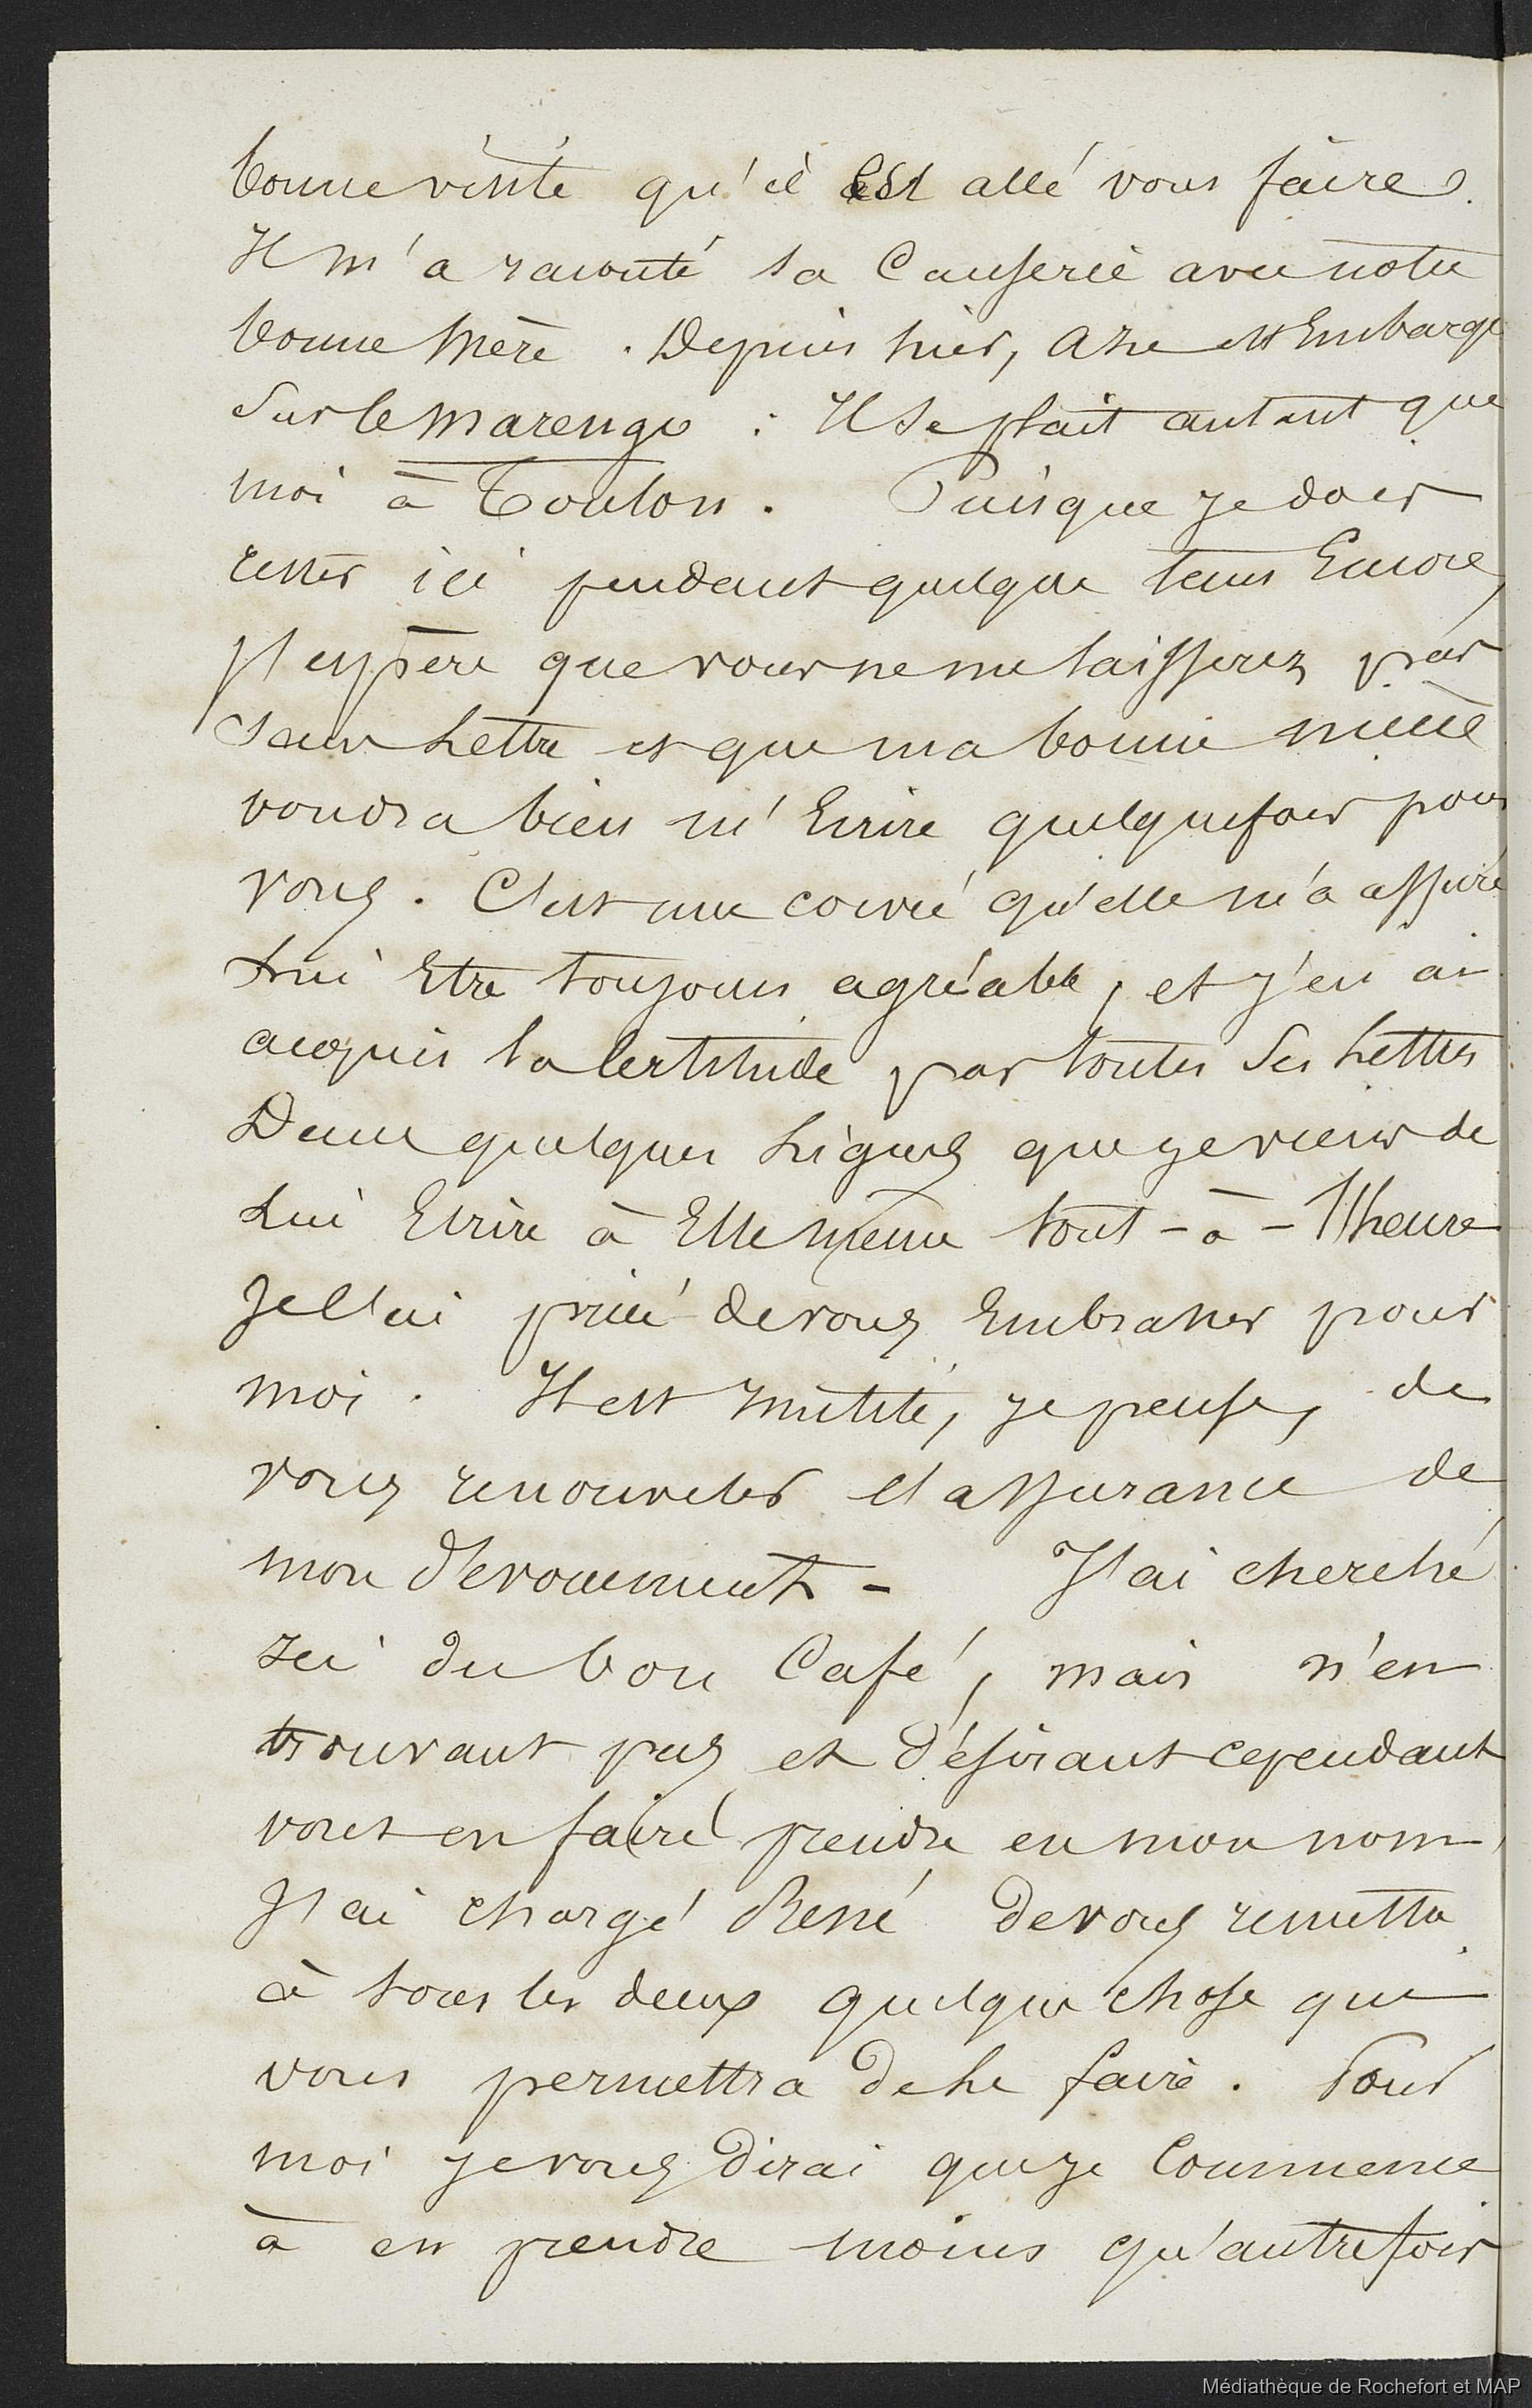 bonne visite qu'il est allé vous faire.
Il m'a raconté sa Causerie avec notre
bonne Mère. Depuis hier, est Embarqué
Sur le Marengo : Il se plait autant que
moi à Toulon. Puisque je dois
rester ici pendant quelque tems Encore,
J'espère que vous ne me laisserez pas
sans Lettre et que ma bonne nièce
voudra bien m'Ecrire quelquefois pour
vous. C'est une corvée qu'elle m'a assuré
Lui Etre toujours agréable, et j'en ai
acquis la Certitude par toutes Ses Lettres
Dans quelques Lignes que je viens de
Lui Ecrire à Elle même tout-à-l'heure
Je l'ai priée de vous Embrasser pour
moi. Il est Inutile, je pense, de
vous renouveler l'assurance de
mon dévouement - J'ai cherché
Ici du bon Café, mais n'en
trouvant pas et désirant cependant
vous en faire prendre en mon nom,
J'ai chargé René de vous remettre
à tous les deux quelque chose qui
vous permettra de le faire. Pour
moi je vous dirai que je Commence
à en prendre moins qu'autrefois
Médiathèque de Rochefort et MAP